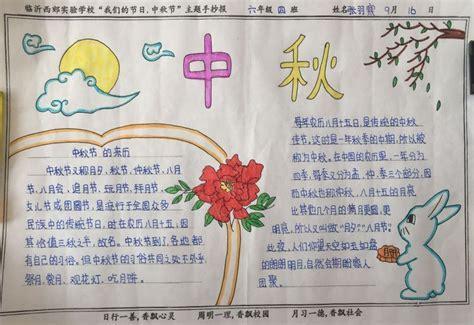 临沂西郊实验学校“我们的节日,中秋节”主题手抄报 六年级 四 班 姓名 张羽霏 9月 16日
中秋
中秋节 的来历
中秋节又称月夕,秋节,仲秋节,八月
节,八月会,追月节,玩月节,拜月节,
女儿节或团圆节,是流行于全国众多
民族中的传统节日,时在农历八月十五,因
其恰值三秋之半,故名。中秋节到了,各地都
有自己的习俗,但中秋节的习俗共同之处不外乎
祭月、赏月、观花灯、吃月饼。
每年农历八月十五日,是传统的中秋
佳节,这时是一年秋季的中期,所以被
称为中秋。在中国的农历里,一年分为
四季,每季又分为孟,仲,季三个部分,因
而中秋也称仲秋,八月十五的月亮
比其他几个月的满月更圆,更
明亮,所以又叫做“月夕”“八月节”
此夜,人们仰望天空如玉如盘
的朗朗明月,自然会期盼家人
团聚。
日行一善,香飘心灵 周明一理,香飘校园 月习一德,香飘社会